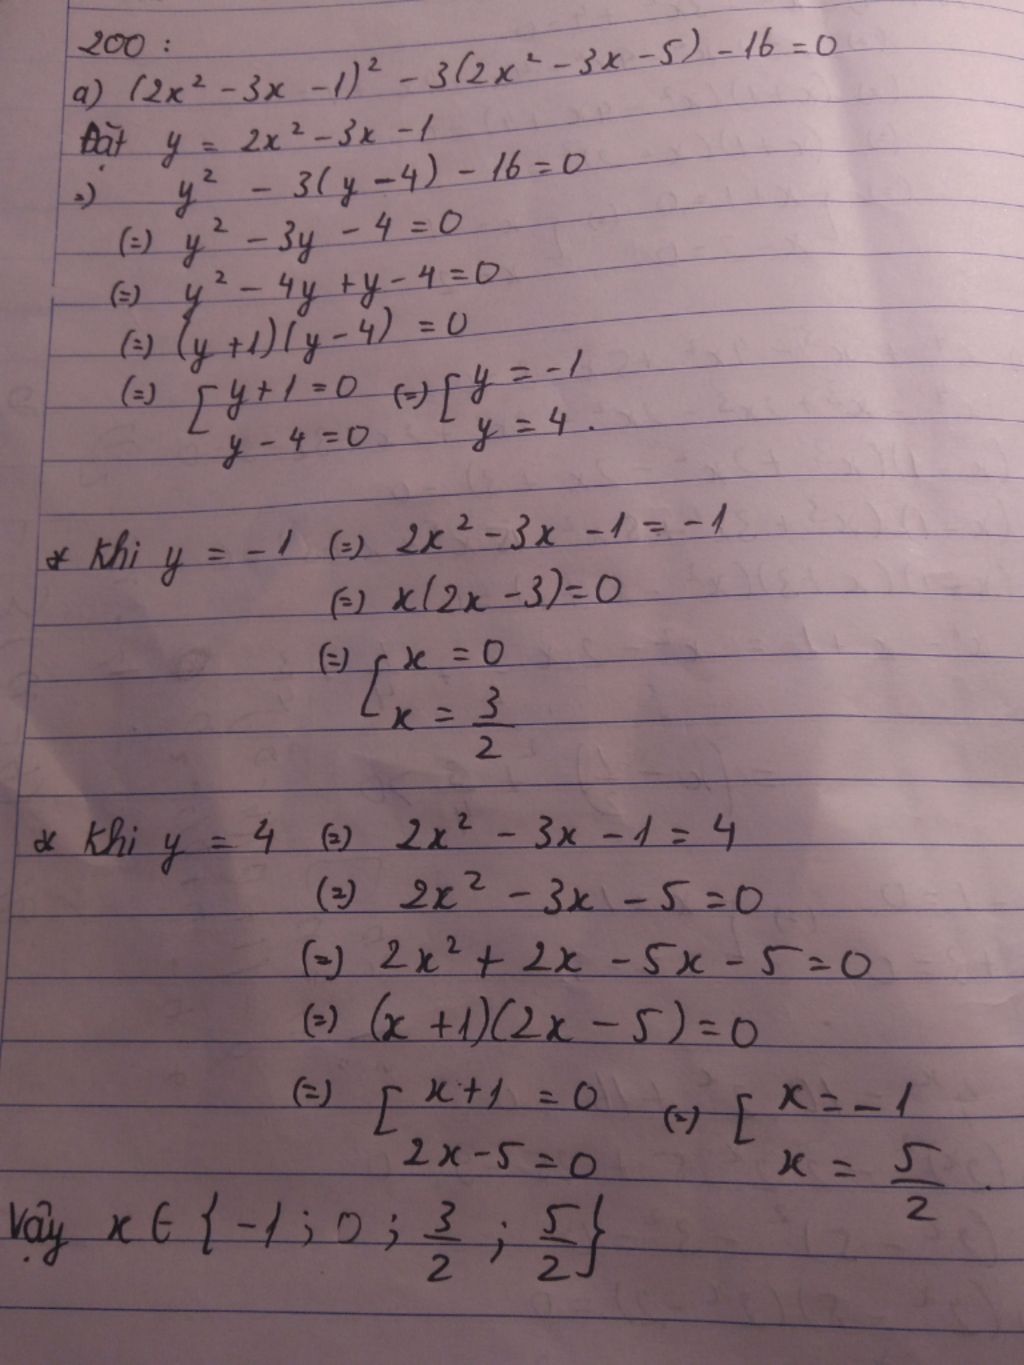 200 :
a) (2x² - 3x - 1)² - 3(2x² - 3x - 5) - 16 = 0
Đặt y = 2x² - 3x - 1
=) y² - 3(y - 4) - 16 = 0
(=) y² - 3y - 4 = 0
(=) y² - 4y + y - 4 = 0
(=) (y + 1)(y - 4) = 0
(=) [ y + 1 = 0 (=) [ y = -1
y - 4 = 0 y = 4 .
* Khi y = -1 (=) 2x² - 3x - 1 = -1
(=) x(2x - 3) = 0
(=) [ x = 0
x = 3/2
* Khi y = 4 (=) 2x² - 3x - 1 = 4
(=) 2x² - 3x - 5 = 0
(=) 2x² + 2x - 5x - 5 = 0
(=) (x + 1)(2x - 5) = 0
(=) [ x + 1 = 0 (=) [ x = -1
2x - 5 = 0 x = 5/2 .
Vậy x ∈ { -1 ; 0 ; 3/2 ; 5/2 }